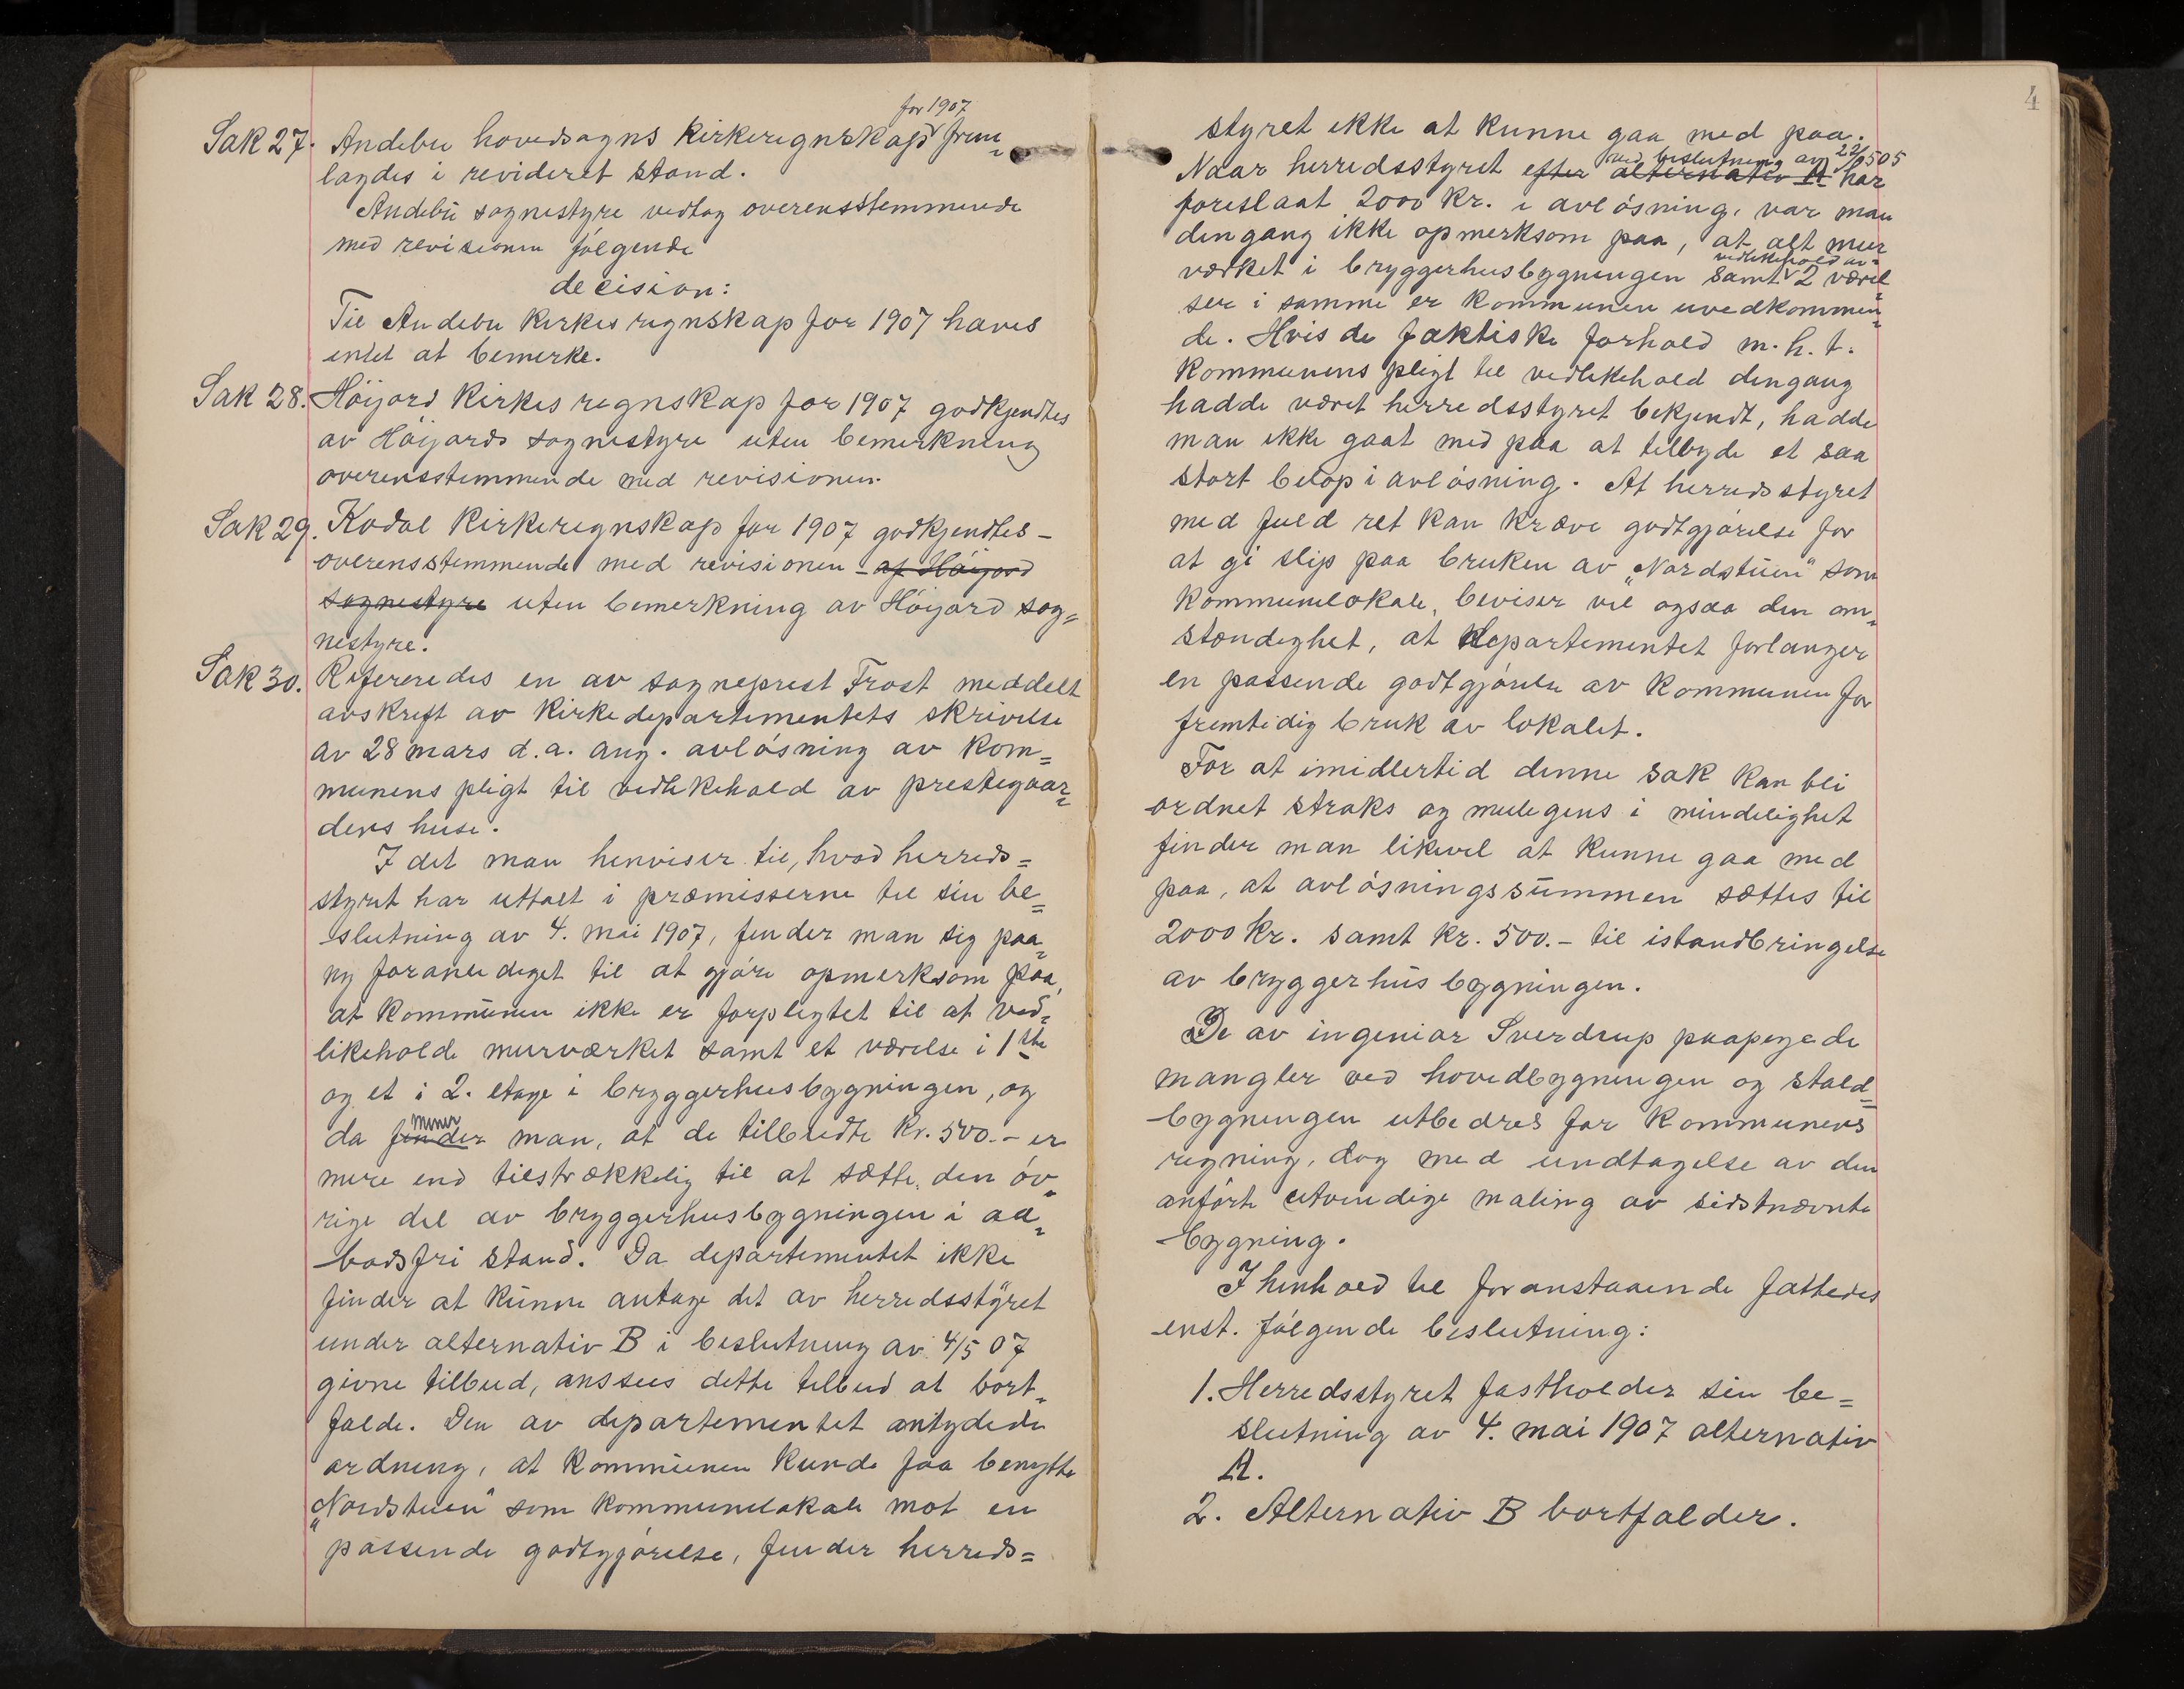 for 1907
Sak 27. Andebu hovedsogns kirkeregnskap frem=
lagdes i revideret stand.
Andebu sognestyre vedtog overensstemmende
med revisionen følgende
decision:
Til Andebu kirkes regnskap for 1907 haves
intet at bemerke.
Sak 28. Höijord kirkes regnskap for 1907 godkjendtes
av Höijords sognestyre uten bemerkning
overensstemmende med revisionen.
Sak 29. Kodal kirkeregnskap for 1907 godkjendtes -
overensstemmende med revisionen - af Höijord
sognestyre uten bemerkning av Höijord sog=
nestyre.
Sak 30. Refereredes en av sogneprest Frost meddelt
avskrift av kirkedepartementets skrivelse
av 28 mars d.a. ang. avløsning av kom=
munens pligt til vedlikehold av prestegaar=
dens huse.
I det man henviser til, hvad herreds=
styret har uttalt i præmisserne til sin be=
slutning av 4. mai 1907, finder man sig paa
ny foranlediget til at gjøre opmerksom paa,
at kommunen ikke er forpligtet til at ved=
likeholde murværket samt et værelse i 1ste
og et i 2. etage i bryggerhusbygningen, og
mener
da finder man, at de tilbudte kr. 500.- er
mere end tilstrækkelig til at sætte den øv=
rige del av bryggerhusbygningen i aa=
bodsfri stand. Da departementet ikke
finder at kunne antage det av herredsstyret
under alternativ B i beslutning av 4/5 07
givne tilbud, ansees dette tilbud at bort=
falde. Den av departementet antydede
ordning, at kommunen kunde faa benytte
„Nordstuen" som kommunelokale mot en
passende godtgjørelse, finder herreds=
4
styret ikke at kunne gaa med paa.
ved beslutning av 22/9 505
Naar herredsstyret efter alternativ A har
foreslaat 2000 kr. i avløsning, var man
dengang ikke opmerksom paa, at alt mur
vedlikehold av
værket i bryggerhusbygningen samt 2 værel=
ser i samme er kommunen uvedkommen=
de. Hvis de faktiske forhold m.h.t.
kommunens pligt til vedlikehold dengang
hadde været herredsstyret bekjendt, hadde
man ikke gaat med paa at tilbyde et saa
stort beløp i avløsning. At herredsstyret
med fuld ret kan kræve godtgjørelse for
at gi slip paa bruken av „Nordstuen" som
kommunelokale, beviser vel ogsaa den om=
stændighet, at departementet forlanger
en passende godtgjørelse av kommunen for
fremtidig bruk av lokalet.
For at imidlertid denne sak kan bli
ordnet straks og muligens i mindelighet
finder man likevel at kunne gaa med
paa, at avløsningssummen sættes til
2000 kr. samt kr. 500.- til istandbringelse
av bryggerhusbygningen.
De av ingeniør Sverdrup paapegede
mangler ved hovedbygningen og stald=
bygningen utbedres for kommunens
regning, dog med undtagelse av den
anførte utvendige maling av sidstnævnte
bygning.
I henhold til foranstaaende fattedes
enst. følgende beslutning:
1. Herredsstyret fastholder sin be=
slutning av 4. mai 1907 alternativ
A.
2. Alternativ B bortfalder.